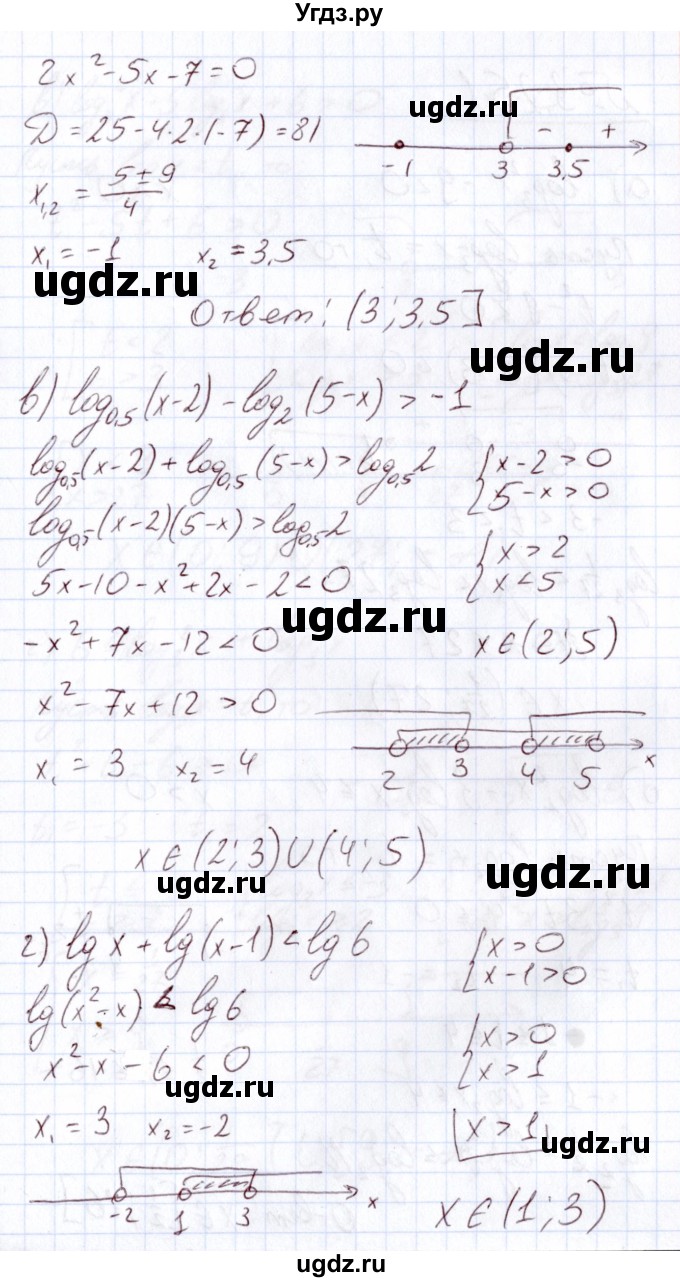 Угдз.ру
2x² - 5x - 7 = 0
D = 25 - 4·2·(-7) = 81
x₁,₂ = (5 ± 9)/4
x₁ = -1 x₂ = 3,5
-1 3 3,5 - +
ugdz.ru
ugdz.ru
Ответ: (3; 3,5]
ugdz.ru
в) log₀,₅(x-2) - log₂(5-x) > -1
log₀,₅(x-2) + log₀,₅(5-x) > log₀,₅2
{x-2 > 0
{5-x > 0
ugdz.ru
log₀,₅(x-2)(5-x) > log₀,₅2
5x - 10 - x² + 2x - 2 < 0
{x > 2
{x < 5
ugdz.ru
-x² + 7x - 12 < 0
x ∈ (2; 5)
x² - 7x + 12 > 0
x₁ = 3 x₂ = 4
2 3 4 5 x
x ∈ (2; 3) ∪ (4; 5)
ugdz.ru
ugdz.ru
г) lg x + lg(x-1) < lg 6
{x > 0
{x-1 > 0
lg(x² - x) < lg 6
x² - x - 6 < 0
{x > 0
{x > 1
ugdz.ru
x₁ = 3 x₂ = -2
x > 1
ugdz.ru
-2 1 3 x
x ∈ (1; 3)
ugdz.ru